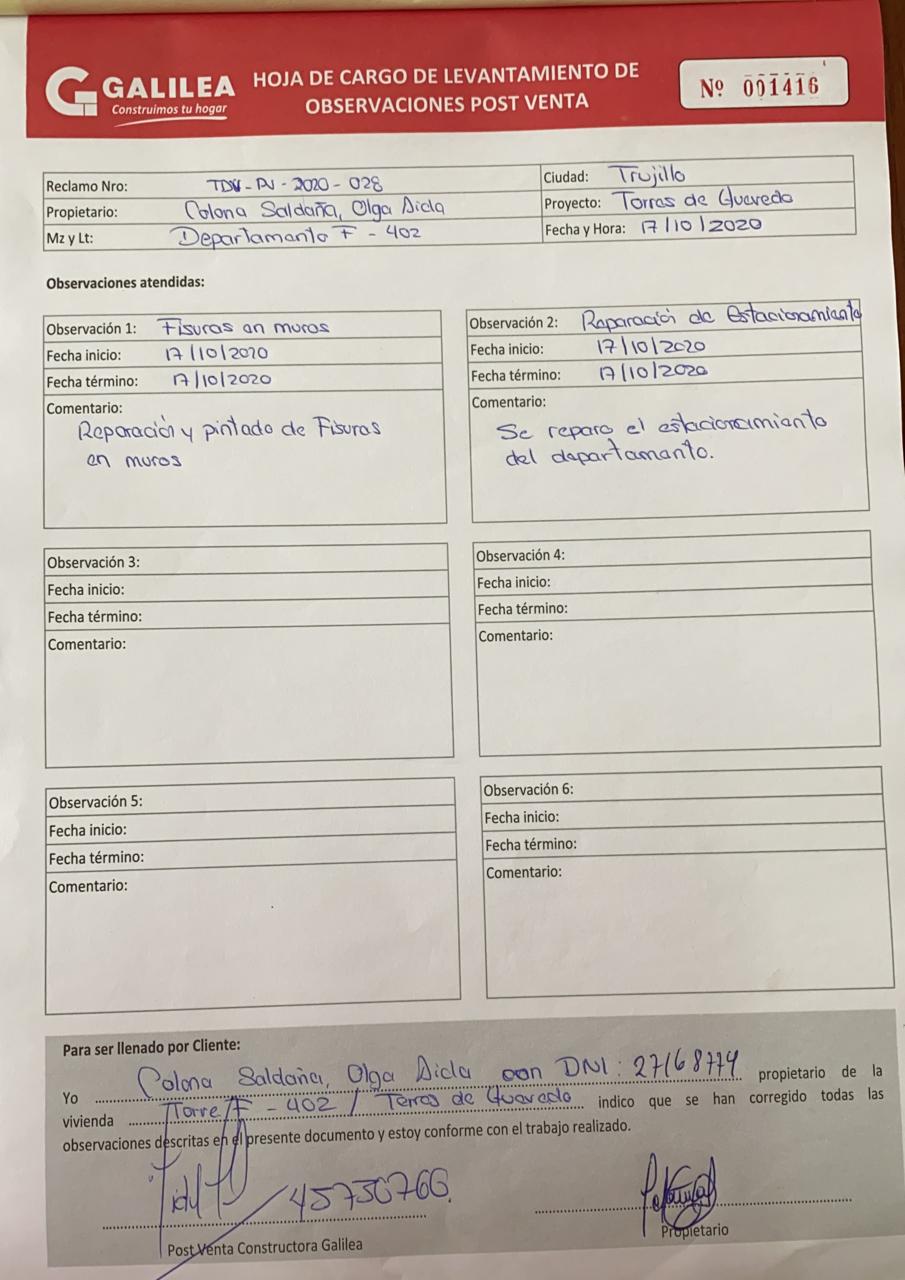 GALILEA
Construimos tu hogar
HOJA DE CARGO DE LEVANTAMIENTO DE
OBSERVACIONES POST VENTA
Nº 001416
Reclamo Nro: TDV-PV-2020-028
Ciudad: Trujillo
Propietario: Colona Saldaña, Olga Aida
Proyecto: Torres de Quevedo
Mz y Lt: Departamento F - 402
Fecha y Hora: 17/10/2020
Observaciones atendidas:
Observación 1: Fisuras en muros
Fecha inicio: 17/10/2020
Fecha término: 17/10/2020
Comentario:
Reparación y pintado de Fisuras
en muros
Observación 2: Reparación de Estacionamiento
Fecha inicio: 17/10/2020
Fecha término: 17/10/2020
Comentario:
Se reparo el estacionamiento
del departamento.
Observación 3:
Fecha inicio:
Fecha término:
Comentario:
Observación 4:
Fecha inicio:
Fecha término:
Comentario:
Observación 5:
Fecha inicio:
Fecha término:
Comentario:
Observación 6:
Fecha inicio:
Fecha término:
Comentario:
Para ser llenado por Cliente:
Yo Colona Saldaña, Olga Aida con DNI: 27168774 propietario de la
vivienda Torre/F - 402 / Torres de Quevedo indico que se han corregido todas las
observaciones descritas en el presente documento y estoy conforme con el trabajo realizado.
45730760
Post Venta Constructora Galilea
Propietario